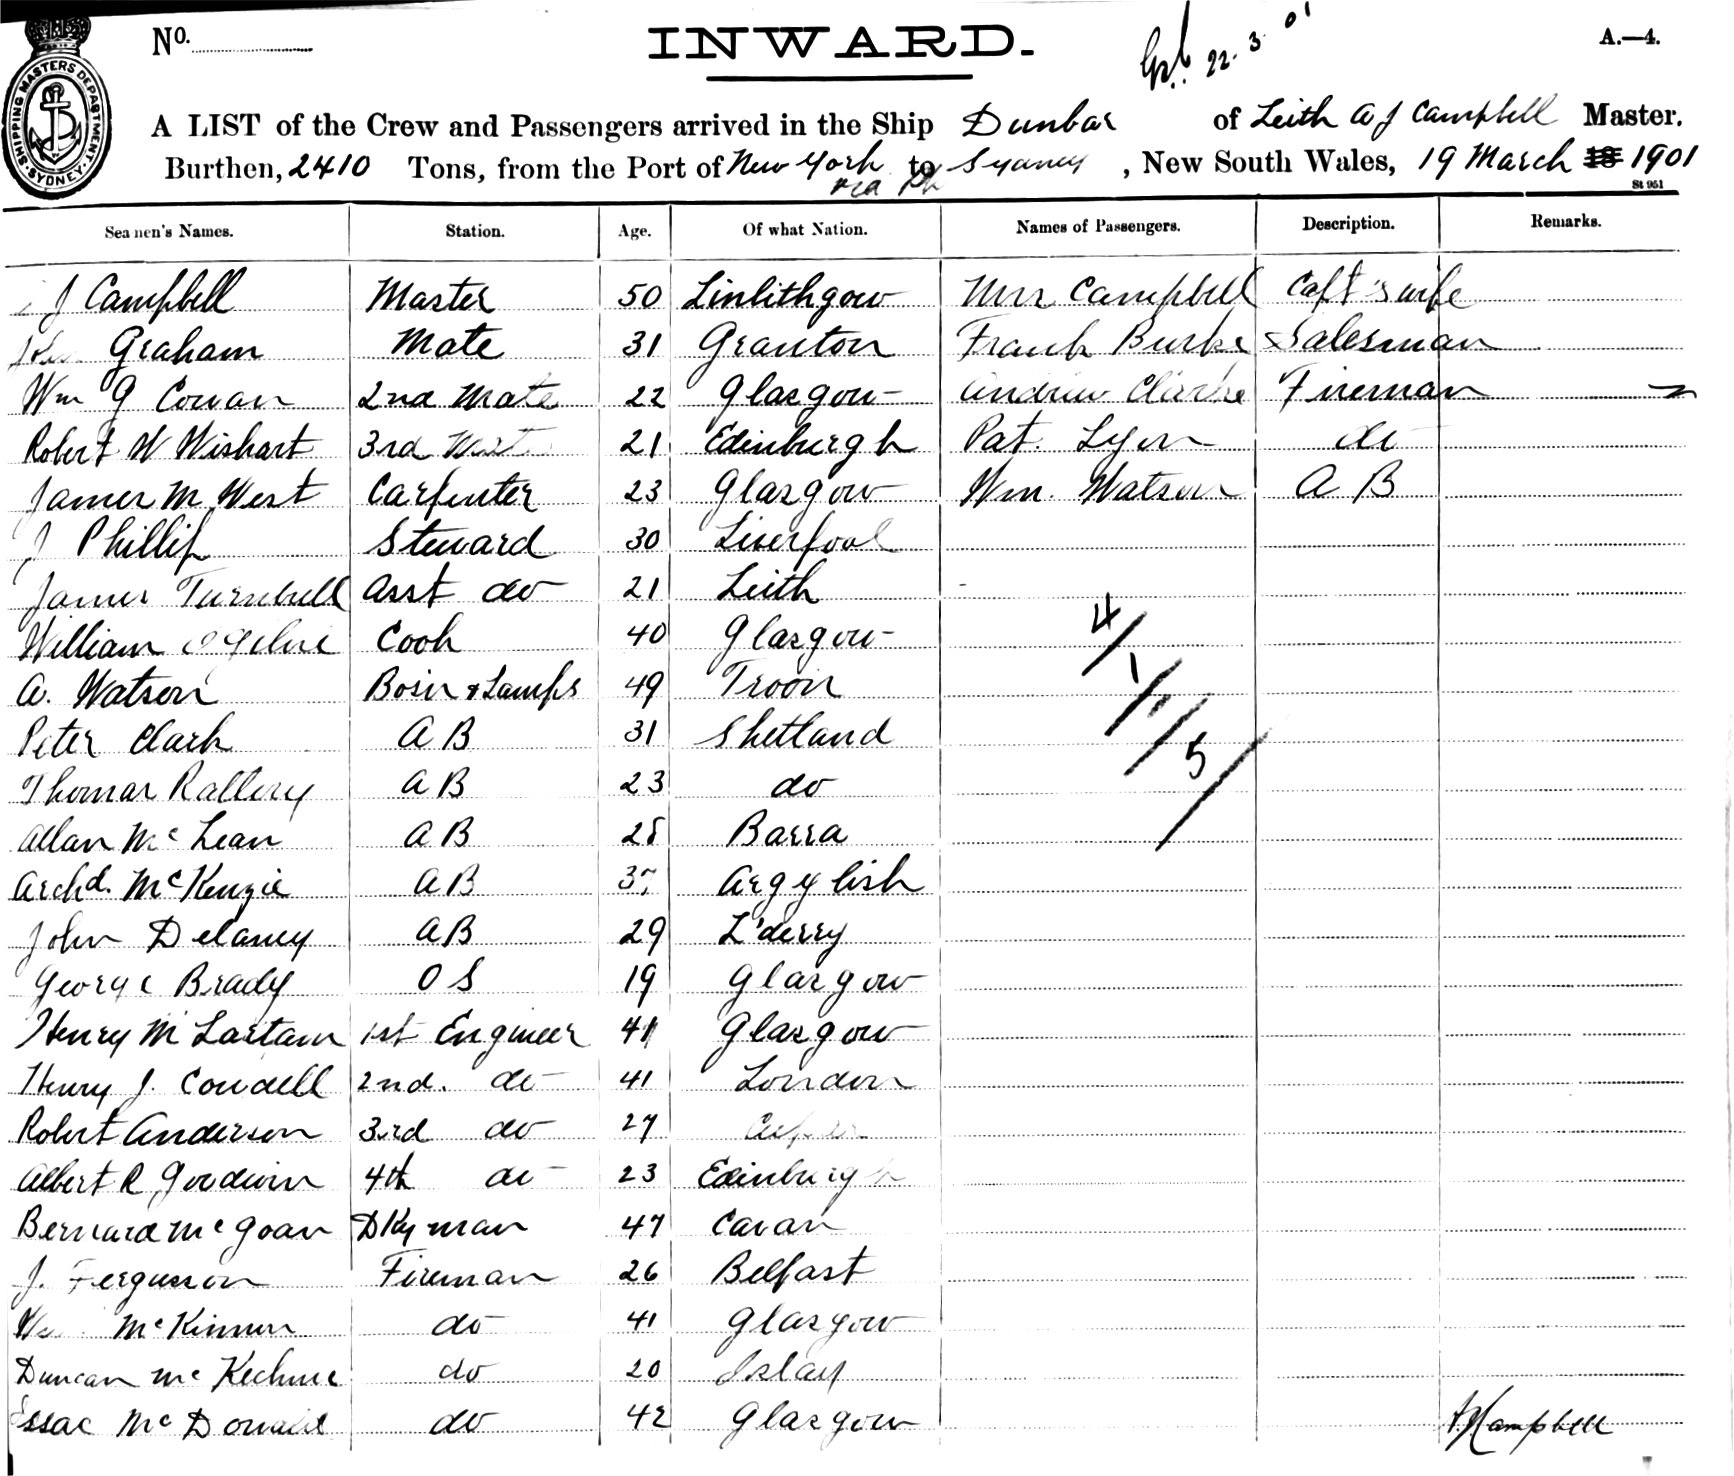 No.
INWARD.
22.3.01
A.—4.
SHIPPING MASTERS DEPARTMENT. SYDNEY.
A LIST of the Crew and Passengers arrived in the Ship Dunbar of Leith A J Campbell Master.
Burthen, 2410 Tons, from the Port of New York to Sydney, New South Wales, 19 March 18 1901
via
St 951
Seamen's Names. Station. Age. Of what Nation. Names of Passengers. Description. Remarks.
J Campbell Master 50 Linlithgow Mrs Campbell Capt's wife
Graham Mate 31 Granton Frank Burke Salesman
Wm G Cowan 2nd Mate 22 Glasgow Andrew Clarke Fireman
Robert W Wishart 3rd Mate 21 Edinburgh Pat. Lyon do
James M West Carpenter 23 Glasgow Wm. Watson A B
J Phillip Steward 30 Liverpool
James Turnbull Asst do 21 Leith
William Ogilvie Cook 40 Glasgow
A. Watson Bosn & Lamps 49 Troon
Peter Clark A B 31 Shetland
Thomas A B 23 do
Allan McLean A B 28 Barra
Archd. McKenzie A B 37 Argylish
John Delaney A B 29 L'derry
George Brady O S 19 Glasgow
Henry M 1st Engineer 41 Glasgow
Henry J. Cowdell 2nd. do 41 London
Robert Anderson 3rd do 27
Albert R Goodwin 4th do 23 Edinburgh
Bernard McGoan Dkyman 47 Cavan
J. Ferguson Fireman 26 Belfast
McKinnon do 41 Glasgow
Duncan McKechnie do 20 Islay
Issac McDonald do 42 Glasgow
4/1/1/5/
A J Campbell